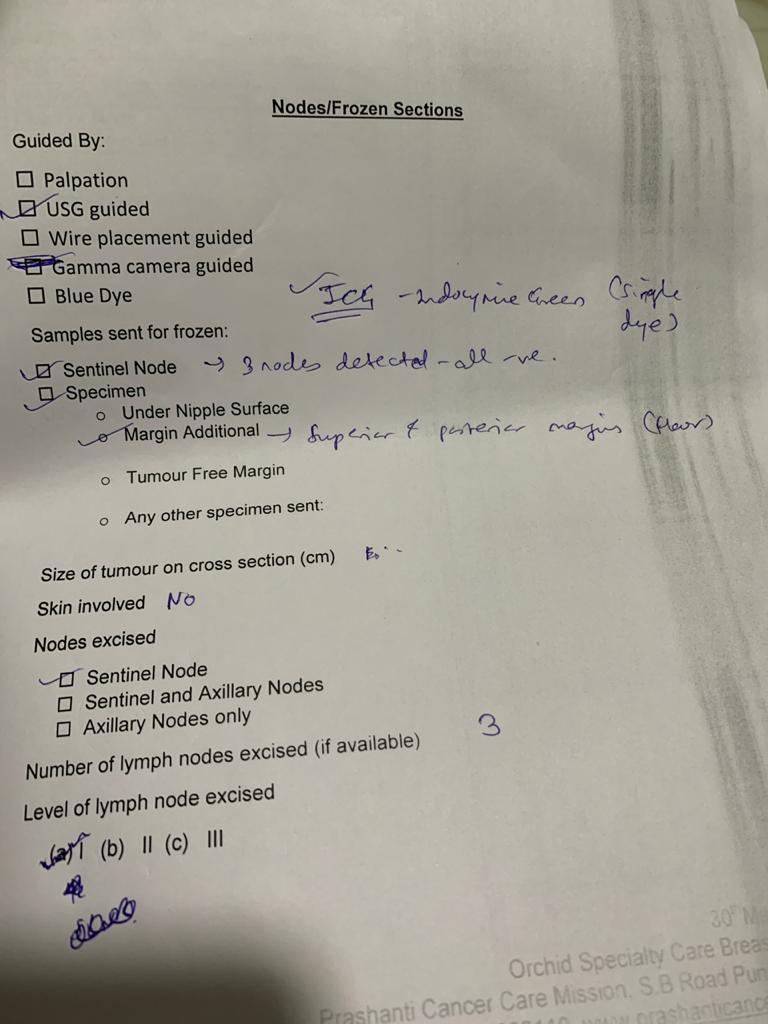 Nodes/Frozen Sections
Guided By:
Palpation
USG guided
Wire placement guided
Gamma camera guided
Blue Dye
ICG - Indocynine Green (single
dye)
Samples sent for frozen:
Sentinel Node → 3 nodes detected - all -ve.
Specimen
Under Nipple Surface
Margin Additional → Superior & posterior margins
Tumour Free Margin
Any other specimen sent:
Size of tumour on cross section (cm)
Skin involved NO
Nodes excised
Sentinel Node
Sentinel and Axillary Nodes
Axillary Nodes only
Number of lymph nodes excised (if available) 3
Level of lymph node excised
(a) I (b) II (c) III
Orchid Specialty Care Breas
Prashanti Cancer Care Mission, S.B Road Pun
www.prashanticance